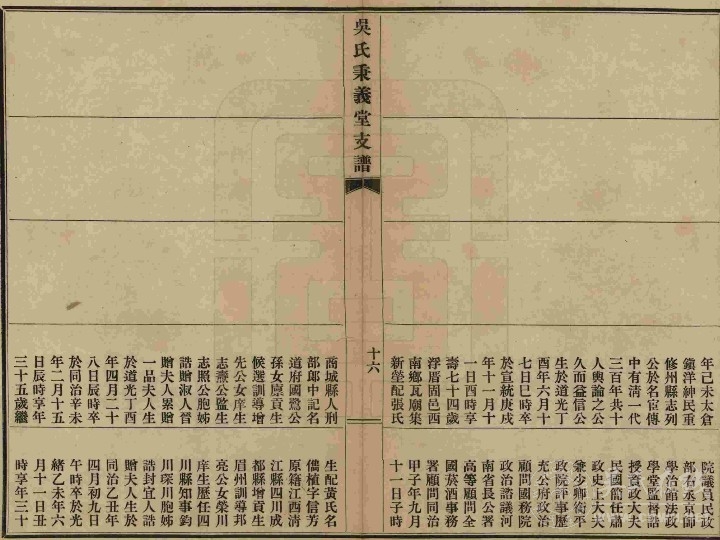 年己未太倉
鎮洋紳民重
修州縣志列
公於名宦傳
中有清一代
三百年共十
人輿論之公
久而益信公
生於道光丁
酉年六月十
七日巳時卒
於宣統庚戌
年十一月十
一日酉時享
壽七十四歲
浮厝固邑西
南鄉瓦廟集
新塋配張氏
院議員民政
部右丞京師
學治館法政
學堂監督誥
授資政大夫
民國簡任肅
政史上大夫
兼少卿銜平
政院評事歷
充公府政治
顧問國務院
政治諮議河
南省長公署
高等顧問全
國菸酒事務
署顧問同治
甲子年九月
十一日子時
吳氏秉義堂支譜
十六
商城縣人刑
部郎中記名
道府國鷺公
孫女廩貢生
候選訓導增
先公女庠生
志燾公監生
志照公胞姊
誥贈淑人晉
贈夫人累贈
一品夫人生
於道光丁酉
年四月二十
八日辰時卒
於同治辛未
年二月十五
日辰時享年
三十五歲繼
生配黃氏名
儒植字信芳
原籍江西清
江縣四川成
都縣增貢生
眉州訓導邦
亮公女榮川
庠生歷任四
川縣知事鈞
川琛川胞姊
誥封宜人誥
贈夫人生於
同治乙丑年
四月初九日
午時卒於光
緒乙未年六
月十一日丑
時享年三十